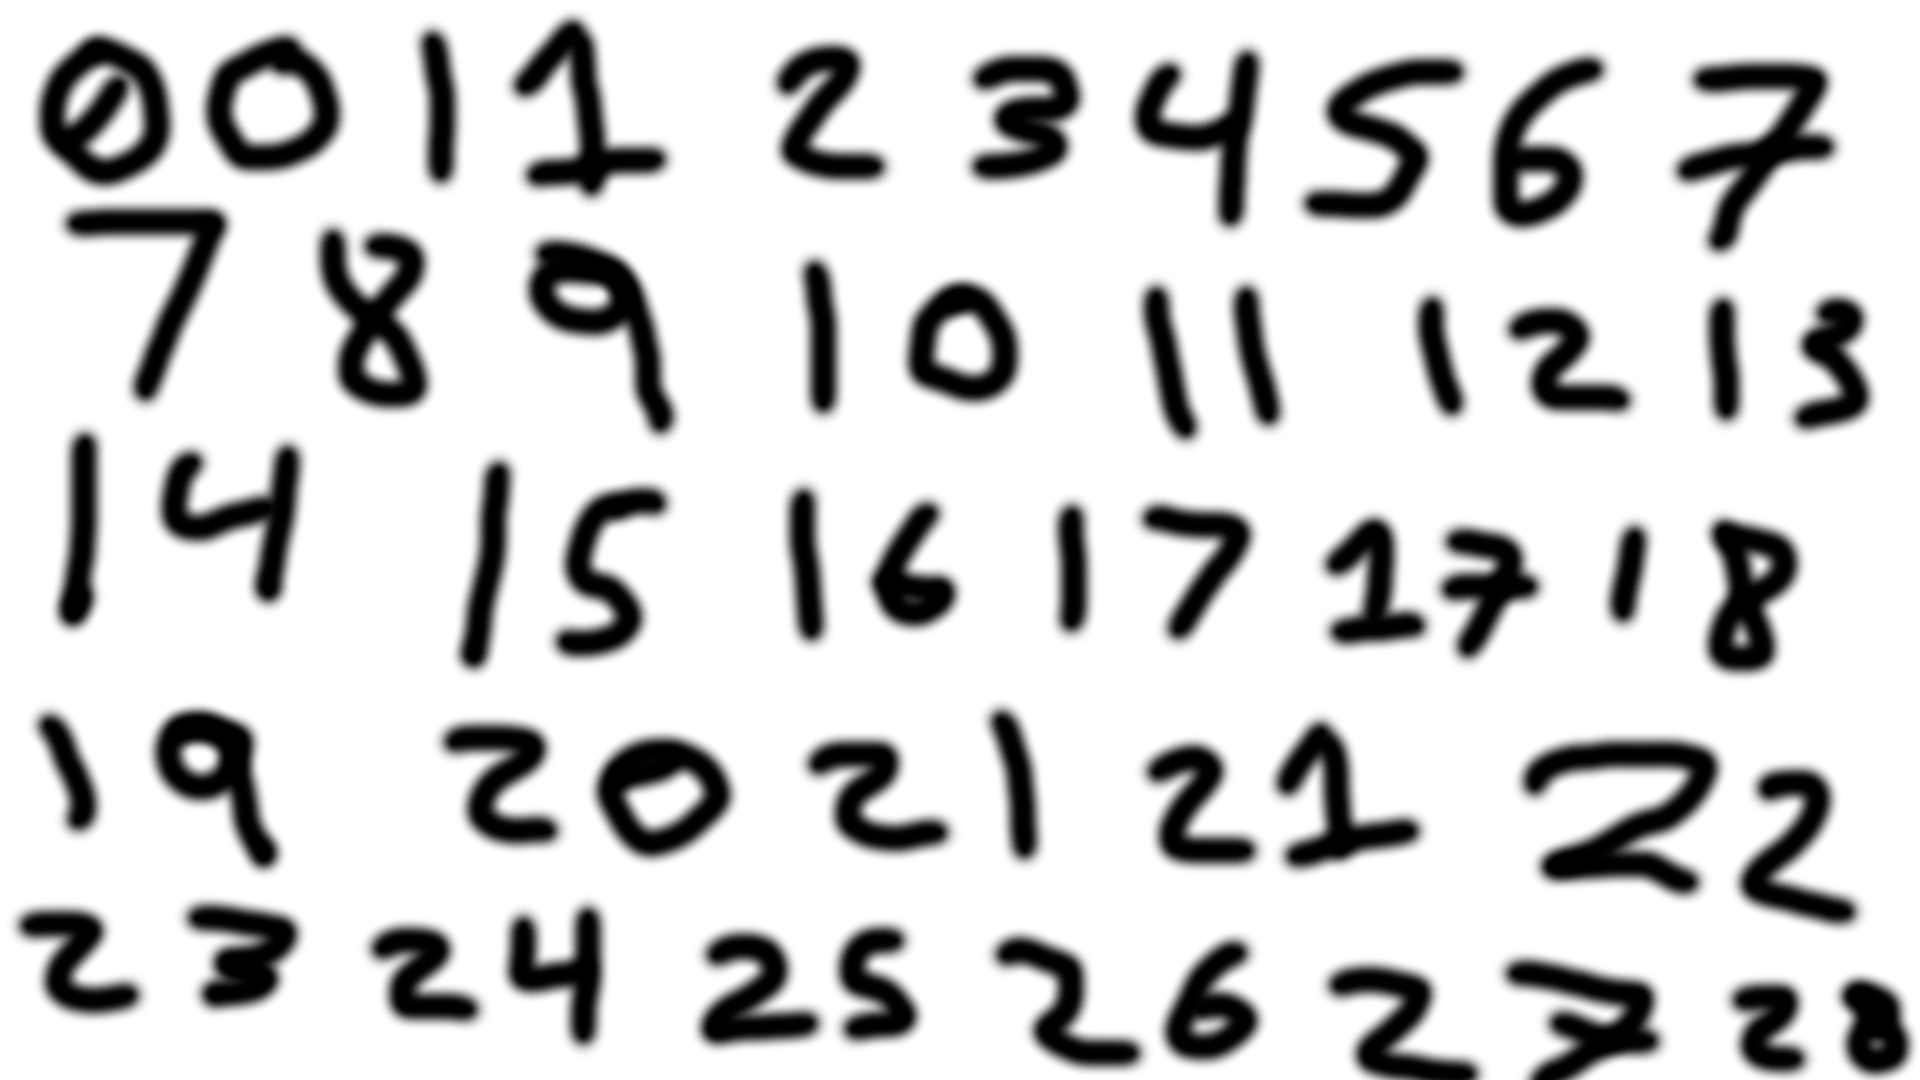 0 0 1 1 2 3 4 5 6 7
7 8 9 10 11 12 13
14 15 16 17 17 18
19 20 21 21 22
23 24 25 26 27 28